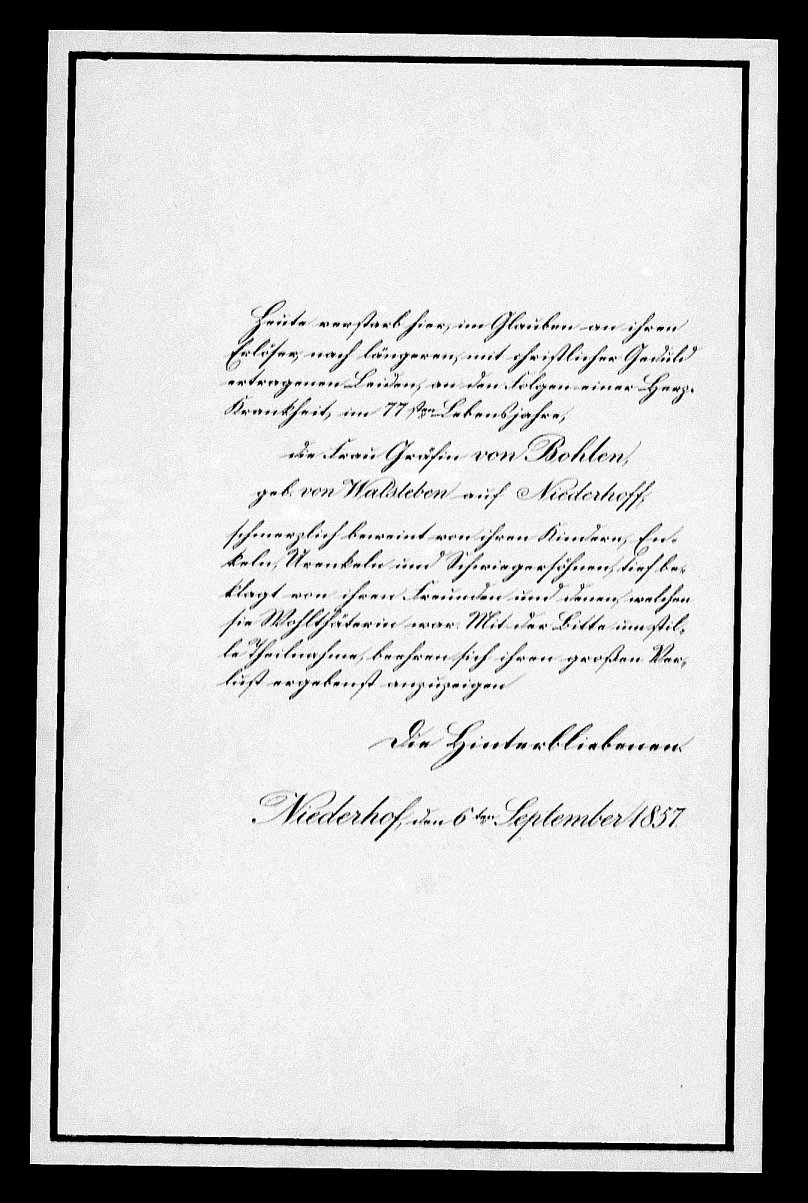 Heute verstarb hier, im Glauben an ihren
Erlöser, nach längeren, mit christlicher Geduld
ertragenen Leiden, an den Folgen einer Herz-
Krankheit, im 77sten Lebensjahre,
die Frau Gräfin von Bohlen,
geb. von Walsleben auf Niederhoff,
schmerzlich beweint von ihren Kindern, En-
keln, Urenkeln und Schwiegersöhnen, tief be-
klagt von ihren Freunden und denen, welchen
sie Wohlthäterin war. Mit der Bitte um stil-
le Theilnahme, beehren sich ihren großen Ver-
lust ergebenst anzuzeigen
Die Hinterbliebenen.
Niederhof, den 6ten September 1857.